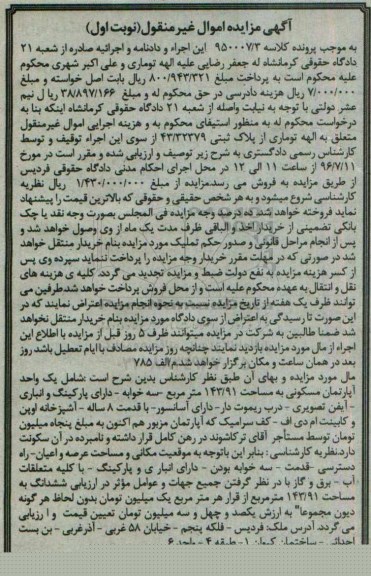 آگهی مزایده اموال غیر منقول(نوبت اول)
به موجب پرونده کلاسه ۹۵۰۰۰۷/۳ این اجراء و دادنامه و اجرائیه صادره از شعبه ۲۱
دادگاه حقوقی کرمانشاه له جعفر رضایی علیه الهه توماری و علی اکبر شهری محکوم
علیه محکوم است به پرداخت مبلغ ۸۰۰/۹۴۳/۳۲۱ ریال بابت اصل خواسته و مبلغ
۷/۰۰۰/۰۰۰ ریال هزینه دادرسی در حق محکوم له و مبلغ ۳۸/۸۹۷/۱۶۶ ریال نیم
عشر دولتی با توجه به نیابت واصله از شعبه ۲۱ دادگاه حقوقی کرمانشاه اینکه بنا به
درخواست محکوم له به منظور استیفای محکوم به و هزینه اجرایی اموال غیرمنقول
متعلق به الهه توماری از پلاک ثبتی ۴۳/۳۲۳۷۹ از سوی این اجراء توقیف و توسط
کارشناس رسمی دادگستری به شرح زیر توصیف و ارزیابی شده و مقرر است در مورخ
۹۶/۷/۱۱ از ساعت ۱۱ الی ۱۲ در محل اجرای احکام مدنی دادگاه حقوقی فردیس
از طریق مزایده به فروش می رسد.مزایده از مبلغ ۱/۴۳۰/۰۰۰/۰۰۰ ریال نظریه
کارشناسی شروع میشود و به هر شخص حقیقی و حقوقی که بالاترین قیمت را پیشنهاد
نماید فروخته خواهد شد ده درصد وجه مزایده فی المجلس بصورت وجه نقد یا چک
بانکی تضمینی از خریدار اخذ و الباقی ظرف مدت یک ماه از وی وصول خواهد شد و
پس از انجام مراحل قانونی و صدور حکم تملیک مورد مزایده بنام خریدار منتقل خواهد
شد در صورتی که در مهلت مقرر خریدار وجه مزایده را پرداخت ننماید سپرده وی پس
از کسر هزینه مزایده به نفع دولت ضبط و مزایده تجدید می گردد. کلیه ی هزینه های
نقل و انتقال به عهده محکوم علیه است و از محل فروش پرداخت خواهد شد.طرفین می
توانند ظرف یک هفته از تاریخ مزایده نسبت به نحوه انجام مزایده اعتراض نمایند که در
این صورت تا رسیدگی به اعتراض از سوی دادگاه مورد مزایده بنام خریدار منتقل نخواهد
شد ضمنا طالبین به شرکت در مزایده میتوانند ظرف ۵ روز قبل از مزایده با اطلاع این
اجراء از مال مورد مزایده بازدید نمایند چنانچه روز مزایده مصادف با ایام تعطیل باشد روز
بعد در همان ساعت و مکان برگزار خواهد شد.م/الف ۷۸۵
مال مورد مزایده و بهای آن طبق نظر کارشناس بدین شرح است :شامل یک واحد
آپارتمان مسکونی به مساحت ۱۴۳/۹۱ متر مربع -سه خوابه - دارای پارکینگ و انباری
- آیفن تصویری - درب ریموت دار- دارای آسانسور- با قدمت ۸ ساله - آشپزخانه اوپن
و کابینت ام دی اف - کف سرامیک که آپارتمان مزبور هم اکنون به مبلغ پنجاه میلیون
تومان توسط مستأجر آقای ترکاشوند در رهن کامل قرار داشته و نامبرده در آن سکونت
دارد.نظریه کارشناسی : بنابر این باتوجه به موقعیت مکانی و مساحت عرصه و اعیان- راه
دسترسی -قدمت - سه خوابه بودن - دارای انبار ی و پارکینگ - با کلیه متعلقات
آب - برق و گاز با در نظر گرفتن جمیع جهات و عوامل مؤثر در ارزیابی ششدانگ به
مساحت ۱۴۳/۹۱ مترمربع از قرار هر متر مربع یک میلیون تومان بدون لحاظ هر گونه
دیون مجموعا" به ارزش یکصد و چهل و سه میلیون تومان تعیین قیمت و ا رزیابی
می گردد. آدرس ملک: فردیس - فلکه پنجم - خیابان ۵۸ غربی - آذرغربی - بن بست
احداثی - ساختمان کیوان ۱ - طبقه ۴ - واحد ۶